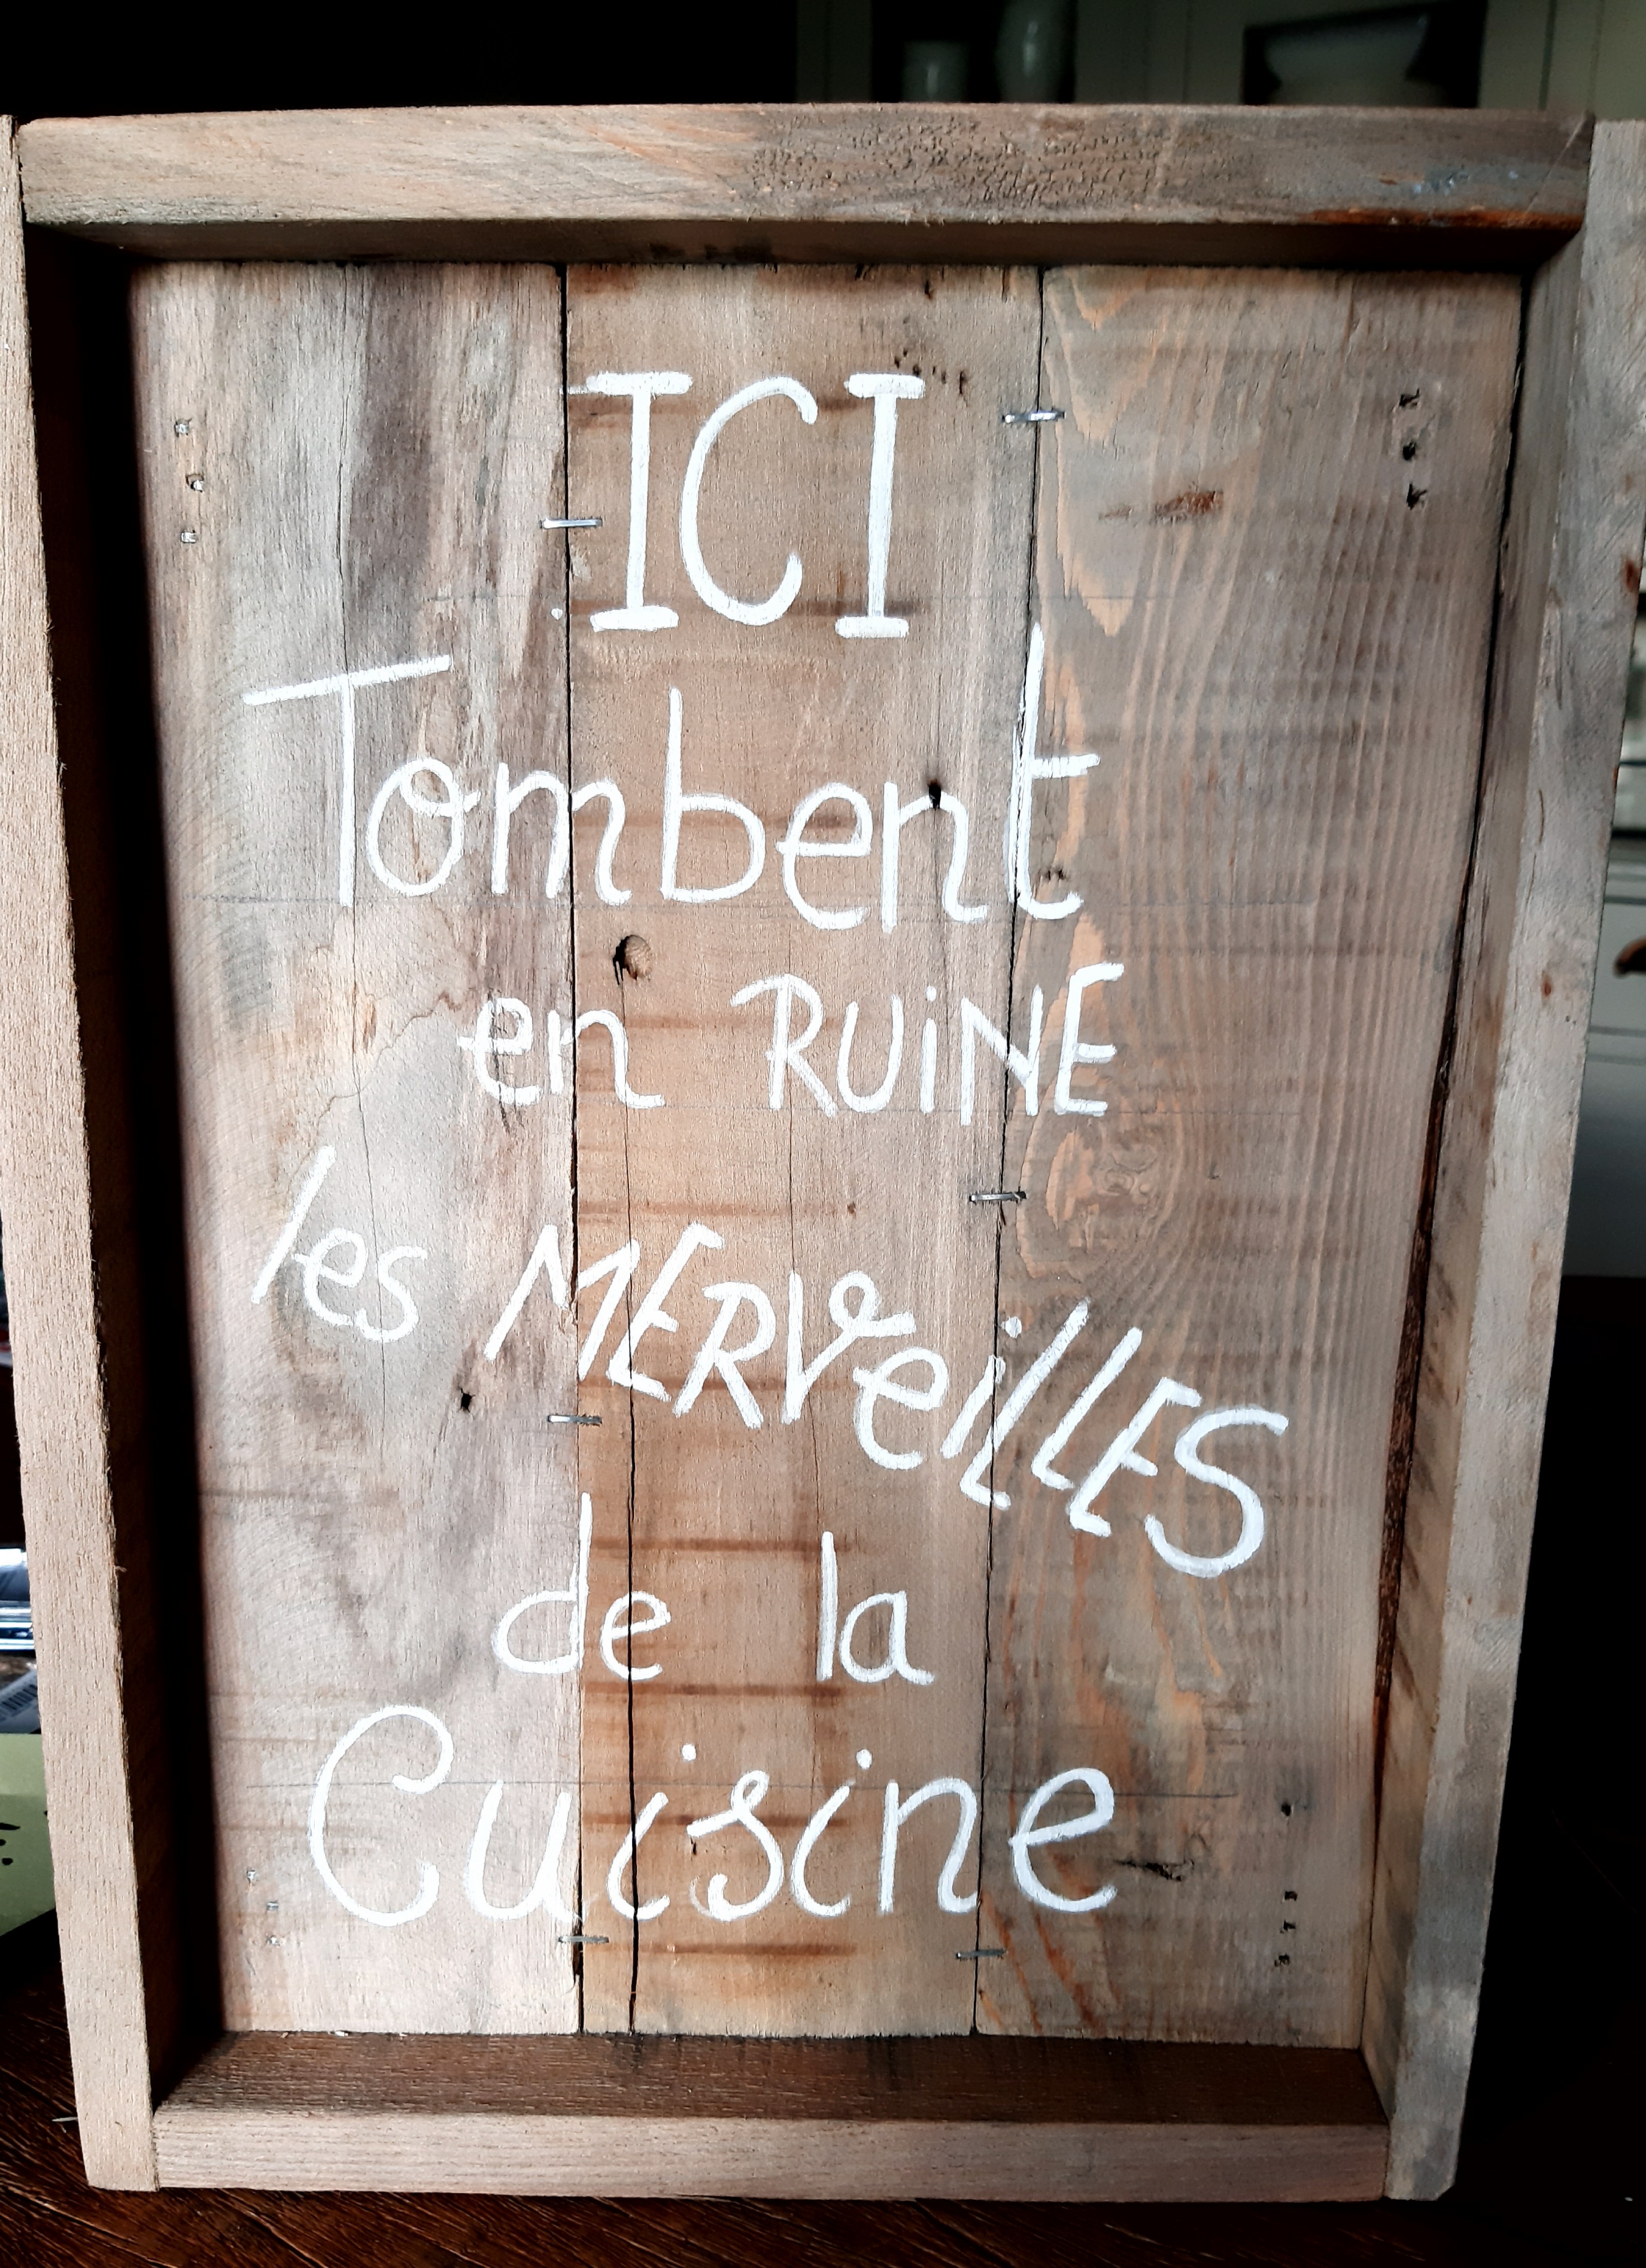 ICI
Tombent
en RUiNE
les MERVeiLLES
de la
Cuisine